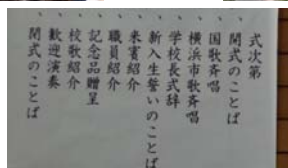 式次第
、開式のことば
、国歌斉唱
、横浜市歌斉唱
、学校長式辞
、新入生誓いのことば
、来賓紹介
、職員紹介
、記念品贈呈
、校歌紹介
、歓迎演奏
、閉式のことば